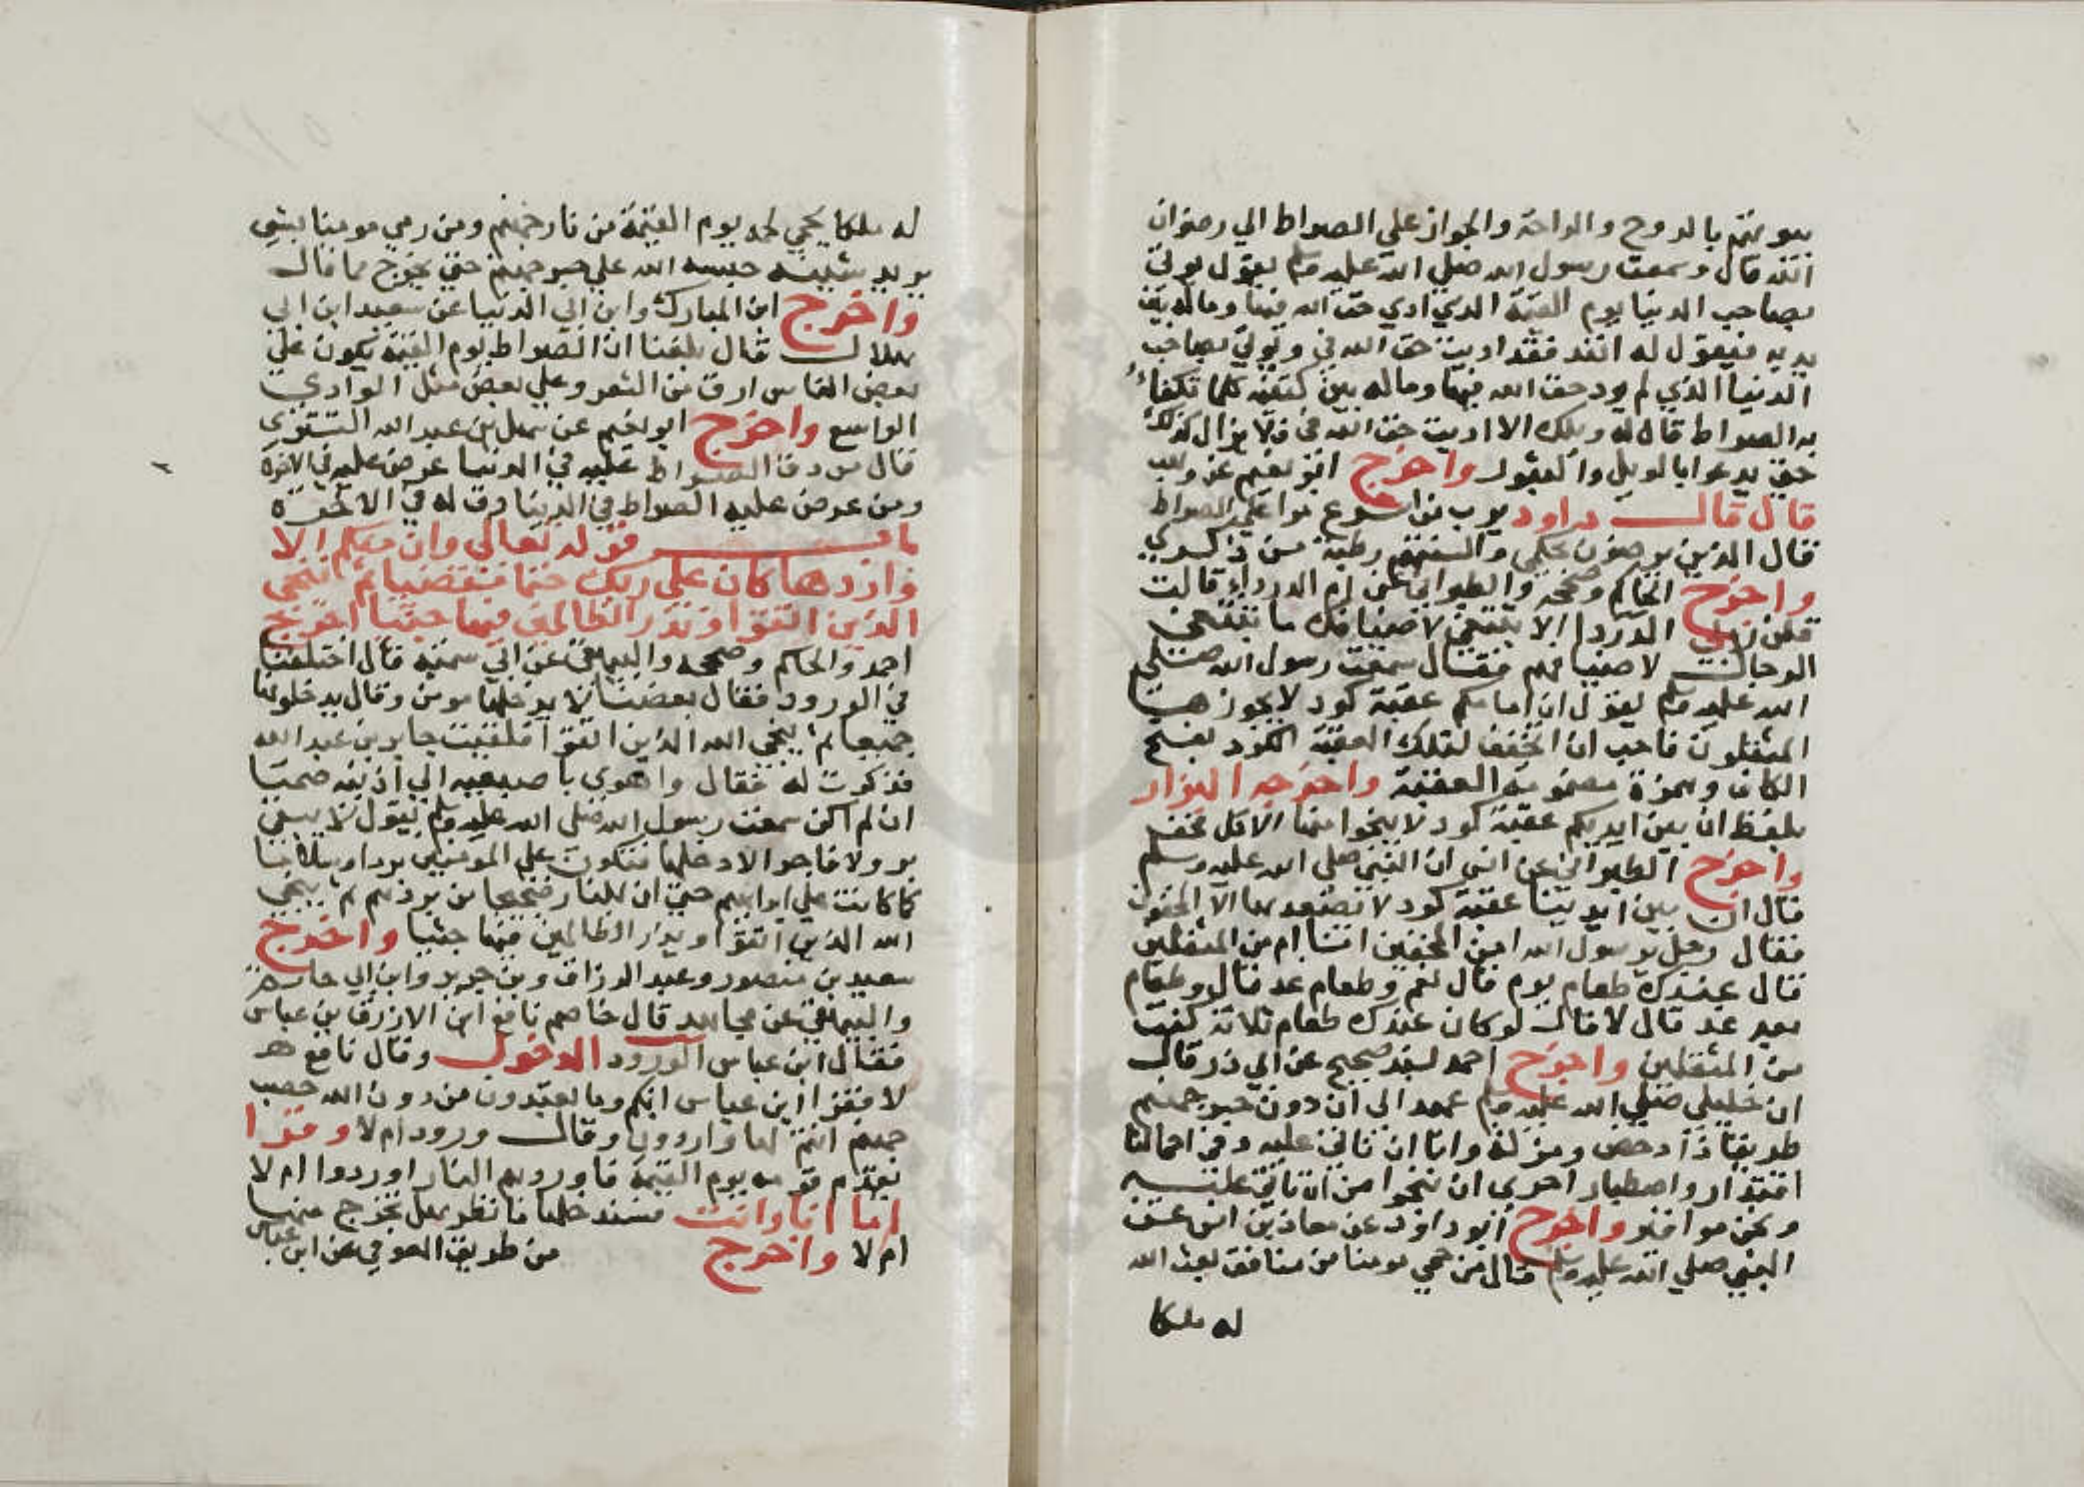 بيوتهم بالروح والراحة والجواز علي الصراط الي رضوان
الله قال وسمعت رسول الله صلي الله عليه وسلم يقول يوتي
بصاحب الدنيا يوم القيمة الذي ادي حق الله فيها وماله بين
يديه فيقول له انفذ فقد اديت حق الله في ويوتي بصاحب
الدنيا الذي لم يود حق الله فيها وماله بين كتفيه كلما تكفاء
به الصراط قال له ويلك الا اديت حق الله في فلا يزال كذلك
حتي يدعوا بالويل والثبور واخرج ابو نعيم عن وهب
قال قال داود يرب من اسرع مرا علي الصراط
قال الذين يرضون بحكمي والسنتهم رطبة من ذكري
واخرج الحاكم وصححه والطبراني عن ام الدرداء قالت
قلت لابي الدردا الا تبتغي لاضيافك ما تبتغي
الرجال لاضيافهم فقال سمعت رسول الله صلي
الله عليه وسلم يقول ان امامكم عقبة كود لا يجوزها
المثقلون فاحب ان اتخفف لتلك العقبة الكود بفتح
الكاف وهمزة مضمومة العقبة واخرجه البزار
بلفظ ان بين ايديكم عقبة كود لا ينجوا منها الا كل مخف
واخرج الطبراني عن انس ان النبي صلي الله عليه وسلم
قال ان بين ايدينا عقبة كود لا يصعدها الا المخفون
فقال رجل يرسول الله امن المخفين انا ام من المثقلين
قال عندك طعام يوم قال نعم وطعام غد قال وطعام
بعد غد قال لا قال لو كان عندك طعام ثلاثة كنت
من المثقلين واخرج احمد بسند صحيح عن ابي ذر قال
ان خليلي صلي الله عليه وسلم عهد الي ان دون جسر جهنم
طريقا ذا دحض ومزلة وانا ان ناتي عليه وفي احمالنا
اقتدار واصطبار احري ان ننجوا من ان ناتي عليه
ونحن مواقير واخرج ابو داود عن معاذ بن انس عن
النبي صلي الله عليه وسلم قال من حمي مومنا من منافق بعث الله
له ملكا
له ملكا يحمي لحمه يوم القيمة من نار جهنم ومن رمي مومنا بشي
يريد شينه حبسه الله علي جسر جهنم حتي يخرج مما قال
واخرج ابن المبارك وابن ابي الدنيا عن سعيد ابن ابي
هلال قال بلغنا ان الصراط يوم القيمة يكون علي
بعض الناس ارق من الشعر وعلي بعض مثل الوادي
الواسع واخرج ابو نعيم عن سهل بن عبد الله التستري
قال من دق الصراط عليه في الدنيا عرض عليه في الاخرة
ومن عرض عليه الصراط في الدنيا دق له في الاخرة
باب قوله تعالي وان منكم الا
واردها كان علي ربك حتما مقضيا ثم ننجي
الذين اتقوا ونذر الظالمين فيها جثيا اخرج
احمد والحاكم وصححه والبيهقي عن ابي سمية قال اختلفنا
في الورود فقال بعضنا لا يدخلها مومن وقال يدخلونها
جميعا ثم ينجي الله الذين اتقوا فلقيت جابر بن عبد الله
فذكرت له فقال واهوي باصبعيه الي اذنيه صمتا
ان لم اكن سمعت رسول الله صلي الله عليه وسلم يقول لا يبقي
بر ولا فاجر الا دخلها فتكون علي المومنين بردا وسلاما
كما كانت علي ابراهيم حتي ان للنار ضجيجا من بردهم ثم ينجي
الله الذين اتقوا ويذر الظالمين فيها جثيا واخرج
سعيد بن منصور وعبد الرزاق وبن جرير وابن ابي حاتم
والبيهقي عن مجاهد قال خاصم نافع ابن الازرق بن عباس
فقال ابن عباس الورود الدخول وقال نافع
لا فقرا ابن عباس انكم وما تعبدون من دون الله حصب
جهنم انتم لها واردون وقال ورود ام لا وقرا
يقدم قومه يوم القيمة فاوردهم النار اوردوا ام لا
اما انا وانت فسندخلها فانظر هل نخرج منها
ام لا واخرج من طريق العوفي عن ابن عباس